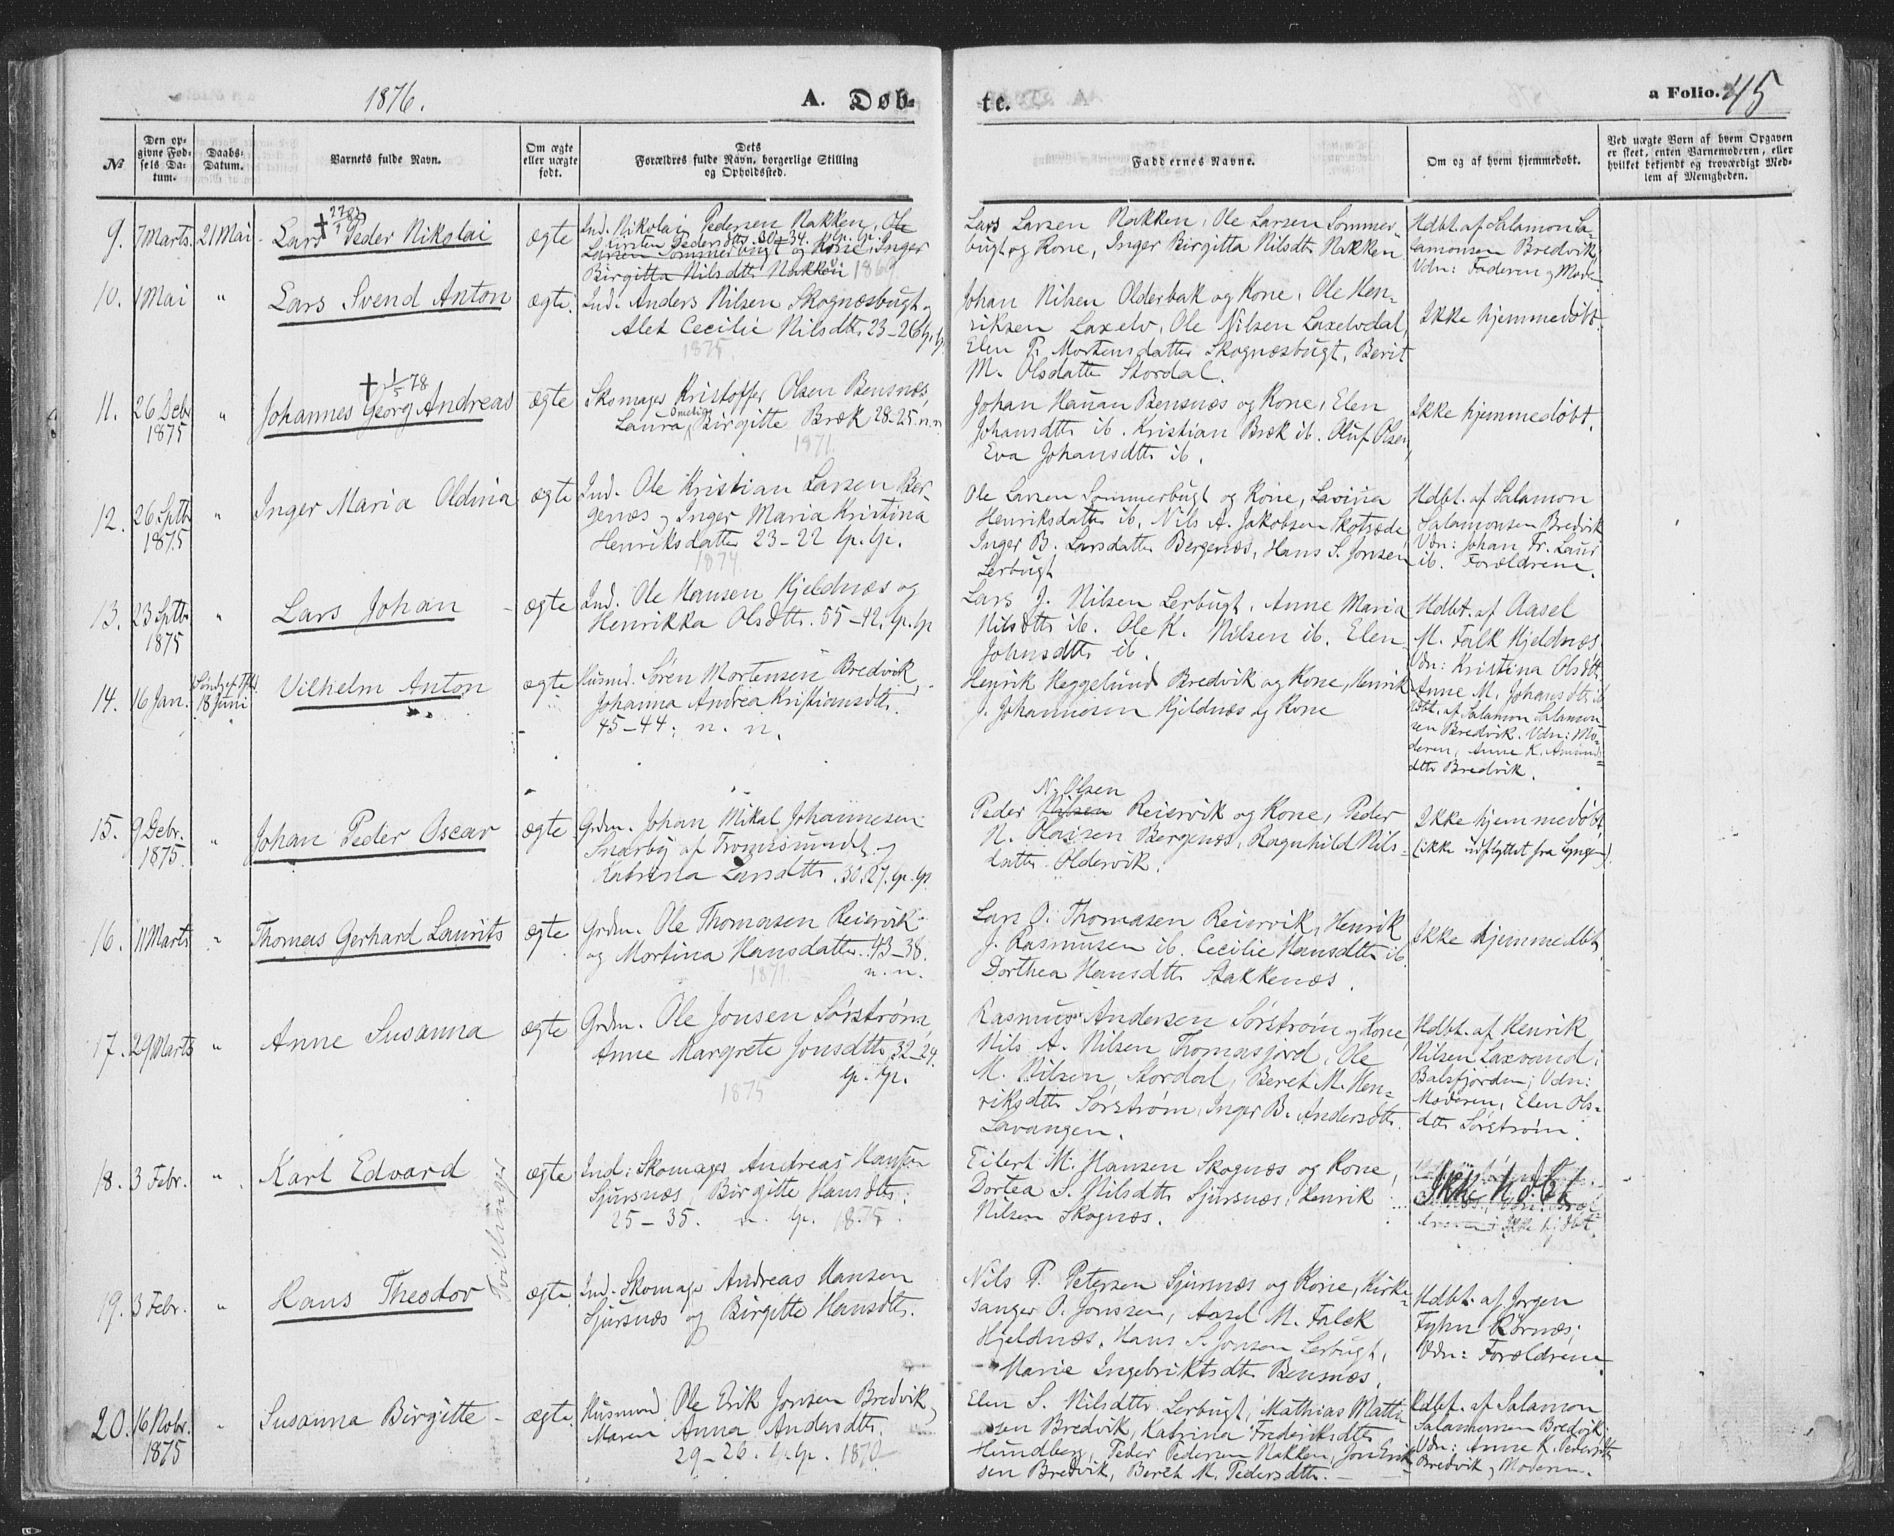 1876.
A. Døb-
te.
a Folio. 45
No
Den op-
givne Fød-
sels Da-
tum.
Daabs-
Datum.
Barnets fulde Navn.
Om ægte
eller uægte
født.
Dets
Forældres fulde Navn, borgerlige Stilling
og Opholdssted.
Faddernes Navne.
Om og af hvem hjemmedøbt.
Ved uægte Børn af hvem Opgaven
er skeet, enten Barnemoderen, eller
hvilket bekjendt og troværdigt Med-
lem af Menigheden.
9. 7 Marts. 21 Mai
Lars Peder Nikolai
ægte
Ind. Nikolai Pedersen Nakken, Ole
Kirsten Pedersdtr. 30-34. lp. lp.
Larsen Sommerbugt og Kone, Inger
Birgitta Nilsdtr Nakken 1869
Lars Larsen Nakken, Ole Larsen Sommer
bugt og Kone, Inger Birgitta Nilsdtr Nakken
Hdbt. af Salamon Sa-
lamonsen Bredvik,
Vdn: Faderen og Mode-
10. 1 Mai "
Lars Svend Anton
ægte.
Ind. Anders Nilsen Skognæsbugt og
Alet Cecilie Nilsdtr 23-26 lp. lp.
1875.
Johan Nilsen Olderbak og Kone, Ole Hen-
riksen Laxelv, Ole Nilsen Laxelvdal,
Elen P. Mortensdatter Skognæsbugt, Berit
M. Olsdatter Stordal.
Ikke hjemmedøbt.
11. 26 Debr 1875 "
† 1/5 78
Johannes Georg Andreas
ægte
Skomager Kristoffer Olsen Bensnæs,
Laura Birgitte Bræk 28-25 n. n
1871.
Johan Hauan Bensnæs og Kone, Elen
Johansdtr ib. Kristian Bræk ib. Oluf Olsen,
Eva Johansdtr ib.
Ikke hjemmedøbt.
12. 26 Sptbr 1875 "
Inger Maria Oldina
ægte
Ind. Ole Kristian Larsen Ber-
genæs og Inger Maria Kristina
Henriksdatter 23-22 lp. lp.
1874.
Ole Larsen Sommerbugt og Kone, Lavina
Henriksdatter ib, Nils A. Jakobsen Skotsæde
Inger B. Larsdatter Bergenæs, Hans S. Jonsen
Lerbugt
Hdbt. af Salamon
Salamonsen Bredvik
Vdn: Johan Fr. Laur
ib. Forældrene.
13. 23 Sptbr 1875 "
Lars Johan
ægte
Ind. Ole Hansen Hjeldnæs og
Henrikka Olsdtr. 55-42. lp. lp
Lars J. Nilsen Lerbugt, Anne Maria
Nilsdtr ib. Ole K. Nilsen ib. Elen
Johnsdtr ib.
Hdbt. af Aasel
M. Falk Hjeldnæs
Vdn: Kristina Olsdtr
Anne M. Johansdtr ib
14. 16 Jan. 18 Juni
Vilhelm Anton
ægte
Husmd. Søren Mortensen Bredvik,
Johanna Andrea Kristiansdtr.
45-44; n. n.
Henrik Heggelund Bredvik og Kone, Henrik
J. Johannesen Hjeldnæs og Kone
Hdbt. af Salamon Salamon-
sen Bredvik. Vdn: Mo-
deren, Anne K. Amund-
dtr Bredvik.
15. 9 Debr. 1875. "
Johan Peder Oscar
ægte
Grdm. Johan Mikal Johannesen
Snarby af Tromsøsundet og
Katrina Larsdtr. 30.27. lp. lp.
N. Olsen
Peder Nilsen Reiervik og Kone, Peder
N. Olaisen Bergenæs, Ragnhild Nils-
datter Oldervik.
Ikke hjemmedøbt
(ikke udflyttet fra Lyngen).
16. 11 Marts "
Thomas Gerhard Laurits
ægte
Grdm. Ole Thomasen Reiervik
og Mortina Hansdatter. 43-38.
n. n.
1871
Lars O. Thomasen Reiervik, Henrik
J. Rasmusen ib. Cecilie Hansdtr ib.
Dorthea Hansdtr Stakkenæs.
Ikke hjemmedbt.
17. 29 Marts "
Anne Susanna
ægte
Grdm. Ole Jonsen Sørstrøm,
Anne Margrete Jonsdtr 32-24.
lp. lp.
1875
Rasmus Andersen Sørstrøm og Kone,
Nils A. Nilsen Thomasjord, Ole
M. Nilsen, Stordal, Beret M. Hen-
riksdtr Sørstrøm, Inger B. Andersdtr.
Lavangen.
Hdbt. af Henrik
Nilsen Laxvand i
Balsfjorden; Vdn:
Moderen, Elen Ols-
dtr Sørstrøm.
18. 3 Febr. "
Karl Edvard
Tvillinger
ægte
Ind: Skomager Andreas Hansen
Sjursnæs, Birgitte Hansdtr.
25-35. n. lp. 1875.
Eilert M. Hansen Skognæs og Kone,
Dortea S. Nilsdtr Sjursnæs, Henrik
Nilsen Skognæs.
Ikke hdbt
19. 3 Febr. "
Hans Theodor
ægte.
Ind. Skomager Andreas Hansen
Sjursnæs og Birgitte Hansdtr.
Nils P. Petersen Sjursnæs og Kone, Kirke-
sanger O. Jonssen, Aasel M. Falck
Hjeldnæs, Hans S. Jonsen Lerbugt,
Marie Ingebriktsdtr Bensnæs.
Hdbt. af Jørgen
Fyhn Rørnæs;
Vdn: Forældrene
20. 16 Nobr. 1875 "
Susanna Birgitte
ægte.
Husmand Ole Erik Jonsen Bredvik,
Maren Anna Andersdtr.
29-26. lp. lp. 1870
Elen S. Nilsdtr. Lerbugt, Mathias Mathi
sen Bredvik, Katrina Frederiksdtr
Hundberg, Peder Pedersen Nakken, Jon Erik
sen Bredvik, Beret M. Pedersdtr.
Hdbt. af Salamon
Salamonsen Bredvik;
Vdn: Anne K. Pedersdtr
Bredvik og Moderen.